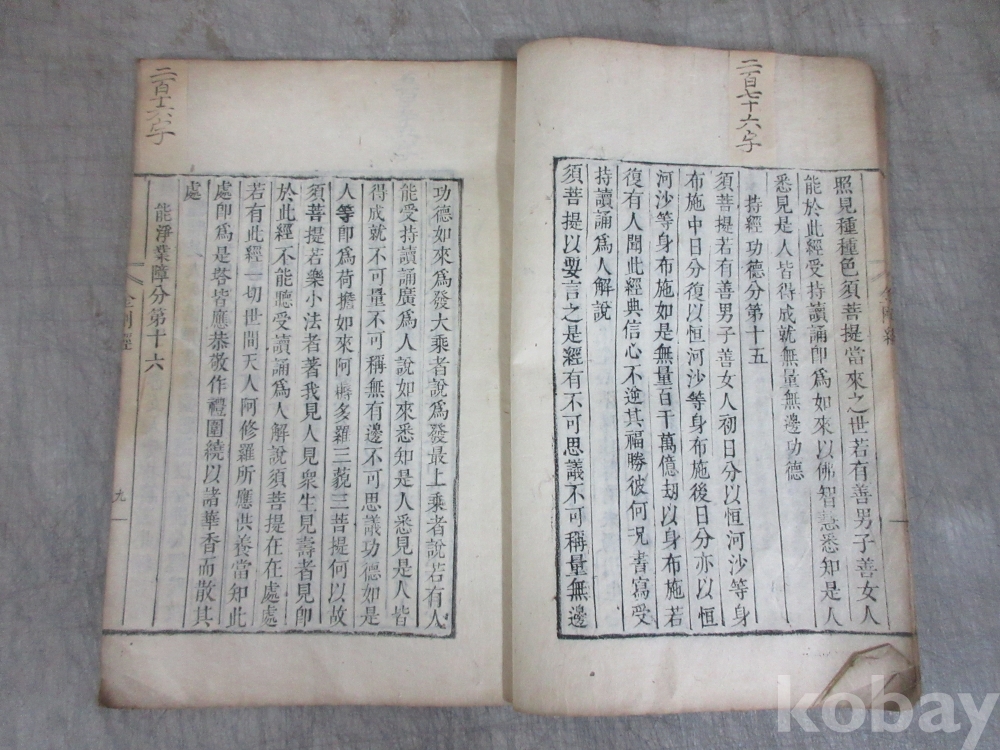 二百七十六字
照見種種色須菩提當來之世若有善男子善女人
能於此經受持讀誦即爲如來以佛智慧悉知是人
悉見是人皆得成就無量無邊功德
持經功德分第十五
須菩提若有善男子善女人初日分以恒河沙等身
布施中日分復以恒河沙等身布施後日分亦以恒
河沙等身布施如是無量百千萬億劫以身布施若
復有人聞此經典信心不逆其福勝彼何况書寫受
持讀誦爲人解說
須菩提以要言之是經有不可思議不可稱量無邊
二百十六字
功德如來爲發大乘者說爲發最上乘者說若有人
能受持讀誦廣爲人說如來悉知是人悉見是人皆
得成就不可量不可稱無有邊不可思議功德如是
人等即爲荷擔如來阿耨多羅三藐三菩提何以故
須菩提若樂小法者著我見人見衆生見壽者見即
於此經不能聽受讀誦爲人解說須菩提在在處處
若有此經一切世間天人阿修羅所應供養當知此
處即爲是塔皆應恭敬作禮圍繞以諸華香而散其
處
能淨業障分第十六
金剛經
九
kobay